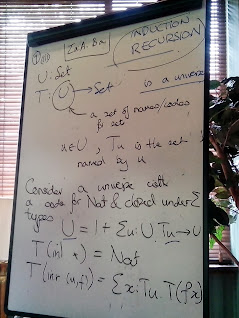 Σa:A. Ba
INDUCTION
RECURSION
U : Set
T : U → Set is a universe
a set of names/codes
for sets
x∈U, Tu is the set
named by u
Consider a universe with
a code for Nat & closed under Σ
types
U = 1 + Σu:U. Tu → U
T(inl *) = Nat
T(inr (u,f)) = Σx:Tu. T(fx)